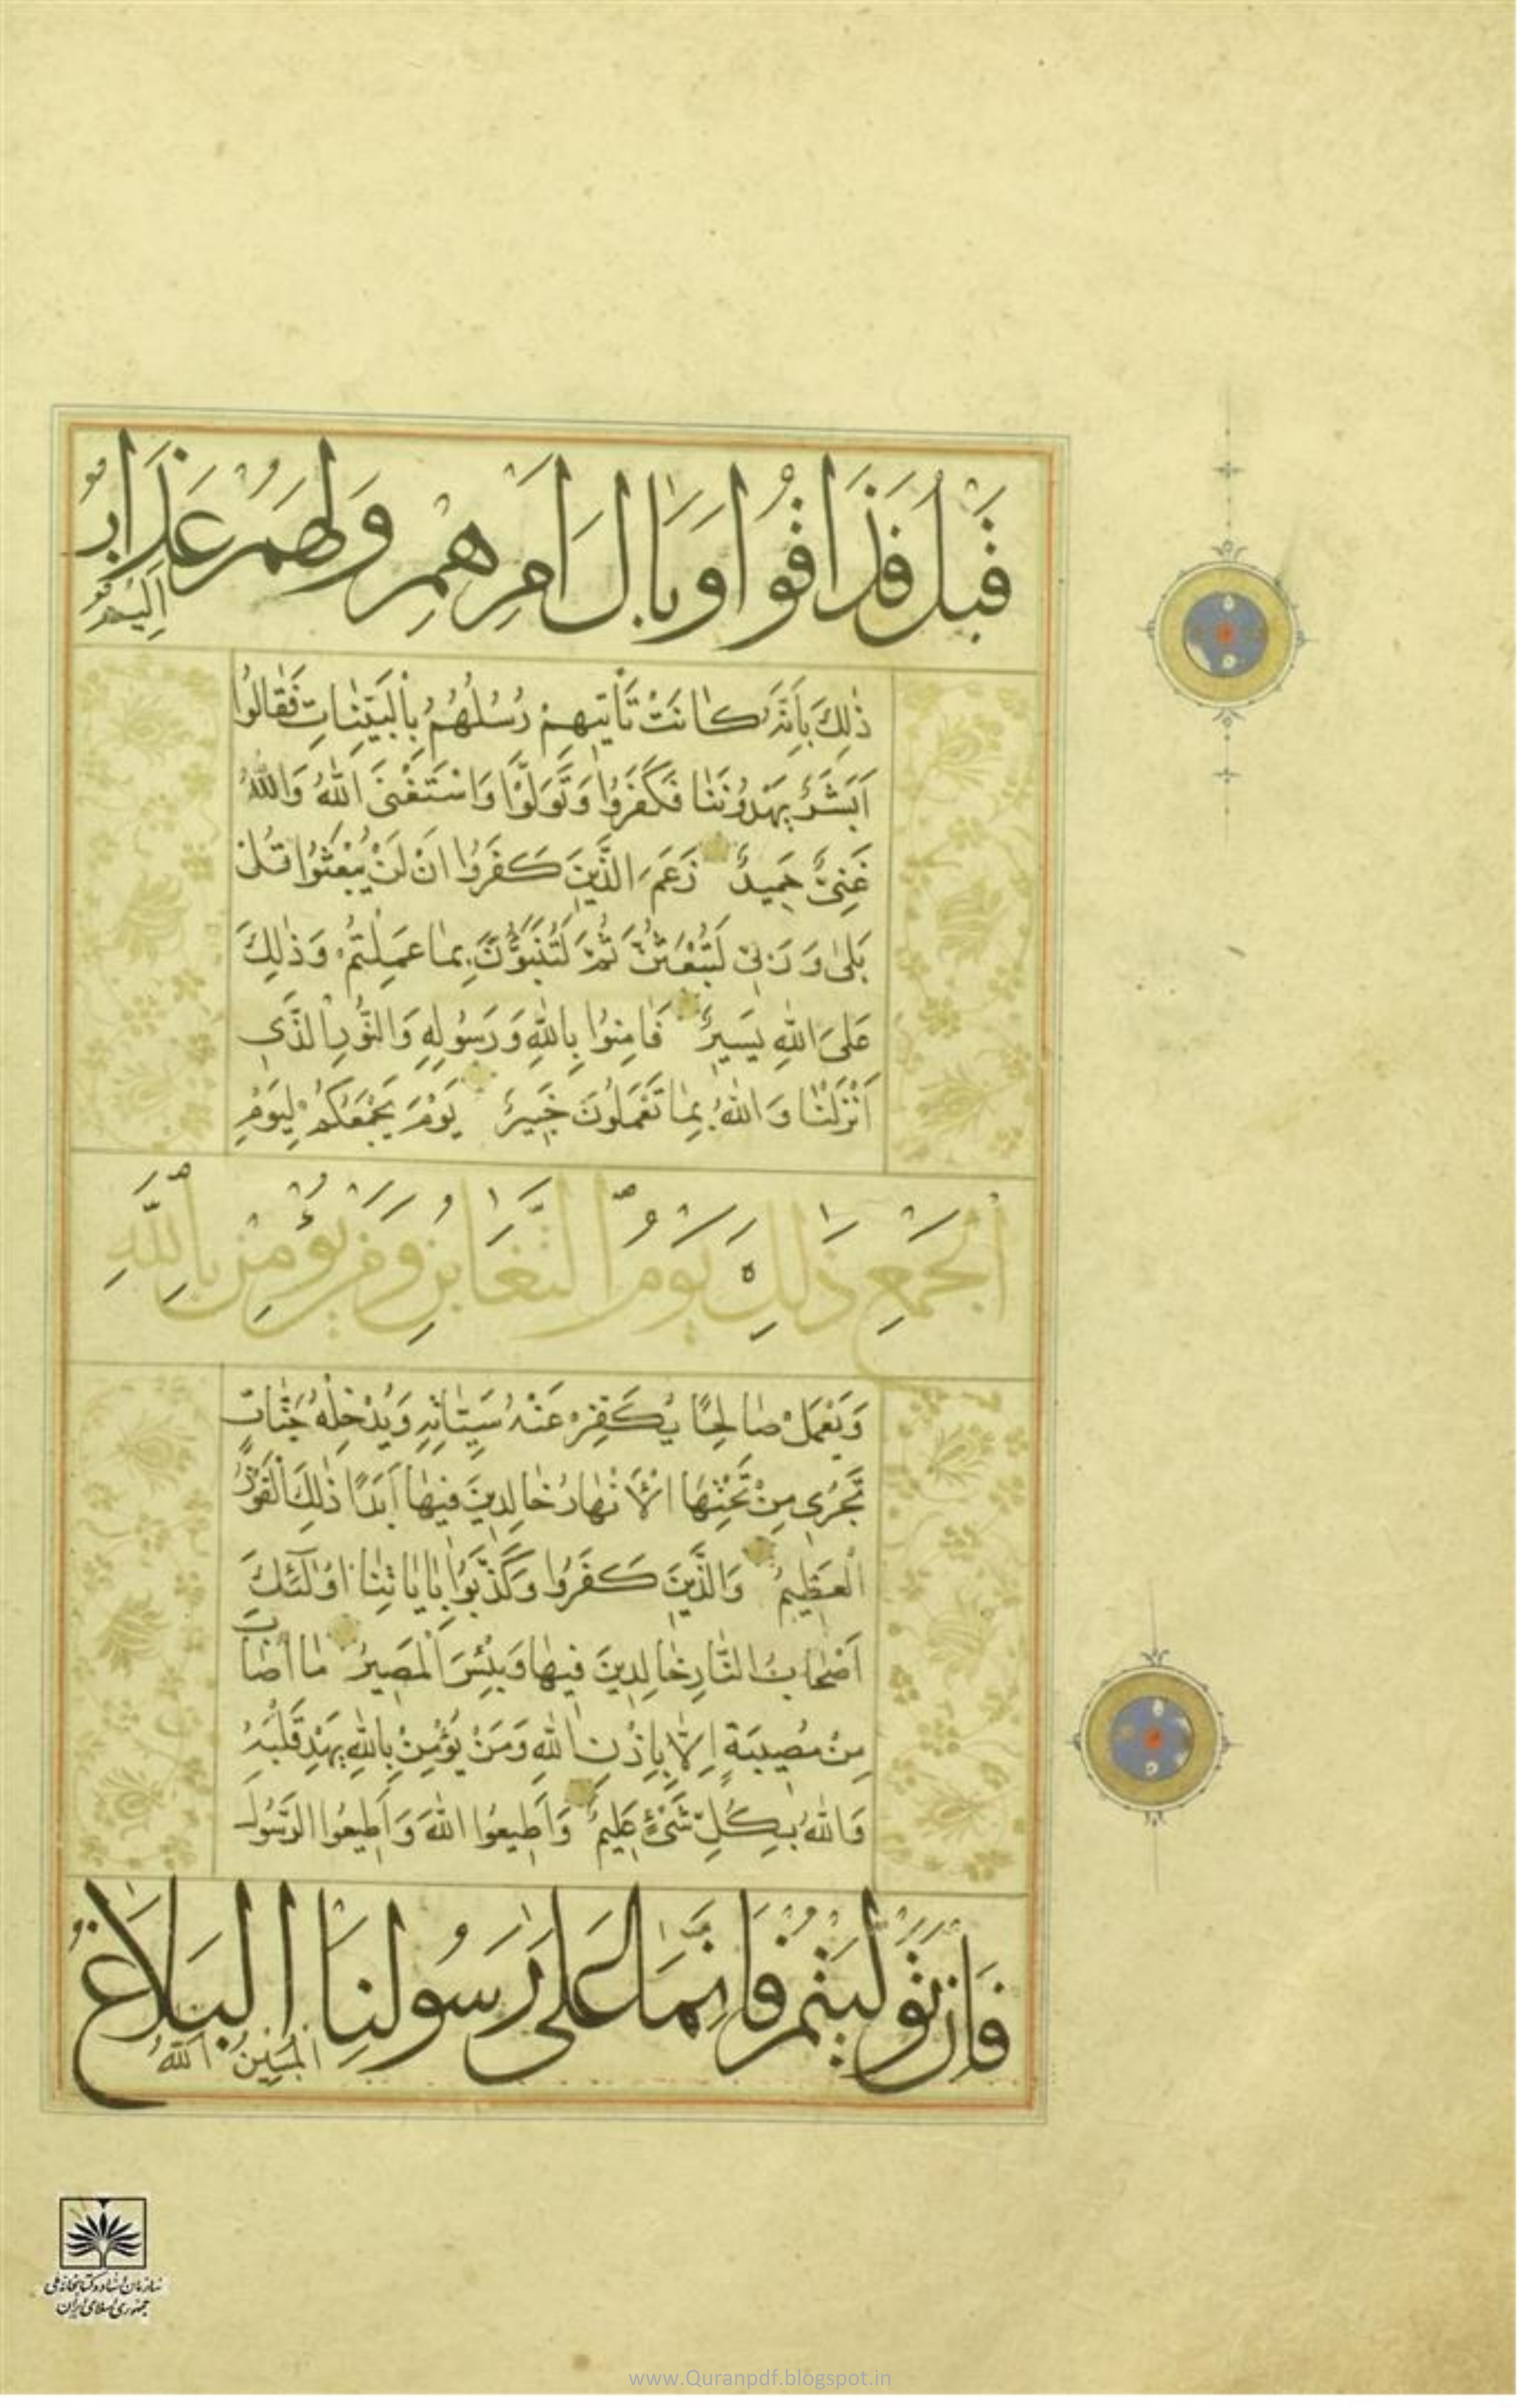 قَبْلُ فَذَاقُوا وَبَالَ اَمْرِهِمْ وَلَهُمْ عَذَابٌ
اَلِيمٌ
ذٰلِكَ بِاَنَّهُ كٰانَتْ تَأْتِيهِمْ رُسُلُهُمْ بِالْبَيِّنٰاتِ فَقٰالُوا
اَبَشَرٌ يَهْدُونَنٰا فَكَفَرُوا وَتَوَلَّوْا وَاسْتَغْنَى اللّٰهُ وَاللّٰهُ
غَنِىٌّ حَمِيدٌ زَعَمَ الَّذِينَ كَفَرُوا اَنْ لَنْ يُبْعَثُوا قُلْ
بَلىٰ وَرَبِّى لَتُبْعَثُنَّ ثُمَّ لَتُنَبَّؤُنَّ بِمٰا عَمِلْتُمْ وَذٰلِكَ
عَلَى اللّٰهِ يَسِيرٌ فَاٰمِنُوا بِاللّٰهِ وَرَسُولِهِ وَالنُّورِ الَّذِى
اَنْزَلْنٰا وَاللّٰهُ بِمٰا تَعْمَلُونَ خَبِيرٌ يَوْمَ يَجْمَعُكُمْ لِيَوْمِ
الْجَمْعِ ذٰلِكَ يَوْمُ التَّغٰابُنِ وَمَنْ يُؤْمِنْ بِاللّٰهِ
وَيَعْمَلْ صٰالِحًا يُكَفِّرْ عَنْهُ سَيِّئٰاتِهِ وَيُدْخِلْهُ جَنّٰاتٍ
تَجْرِى مِنْ تَحْتِهَا الْاَنْهٰارُ خٰالِدِينَ فِيهٰا اَبَدًا ذٰلِكَ الْفَوْزُ
الْعَظِيمُ وَالَّذِينَ كَفَرُوا وَكَذَّبُوا بِاٰيٰاتِنٰا اُولٰئِكَ
اَصْحٰابُ النّٰارِ خٰالِدِينَ فِيهٰا وَبِئْسَ الْمَصِيرُ مٰا اَصٰابَ
مِنْ مُصِيبَةٍ اِلّٰا بِاِذْنِ اللّٰهِ وَمَنْ يُؤْمِنْ بِاللّٰهِ يَهْدِ قَلْبَهُ
وَاللّٰهُ بِكُلِّ شَىْءٍ عَلِيمٌ وَاَطِيعُوا اللّٰهَ وَاَطِيعُوا الرَّسُولَ
فَاِنْ تَوَلَّيْتُمْ فَاِنَّمٰا عَلىٰ رَسُولِنَا الْبَلَاغُ
الْمُبِينُ اللّٰهُ
سازمان اسناد و کتابخانه ملی
جمهوری اسلامی ایران
www.Quranpdf.blogspot.in